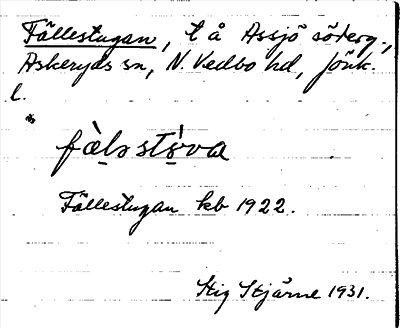 Fällestugan, t å Assjö söderg.,
Askeryds sn, N. Vedbo hd, Jönk.
l.
fàls stṍva
Fällestugan kb 1922.
Stig Stjärne 1931.